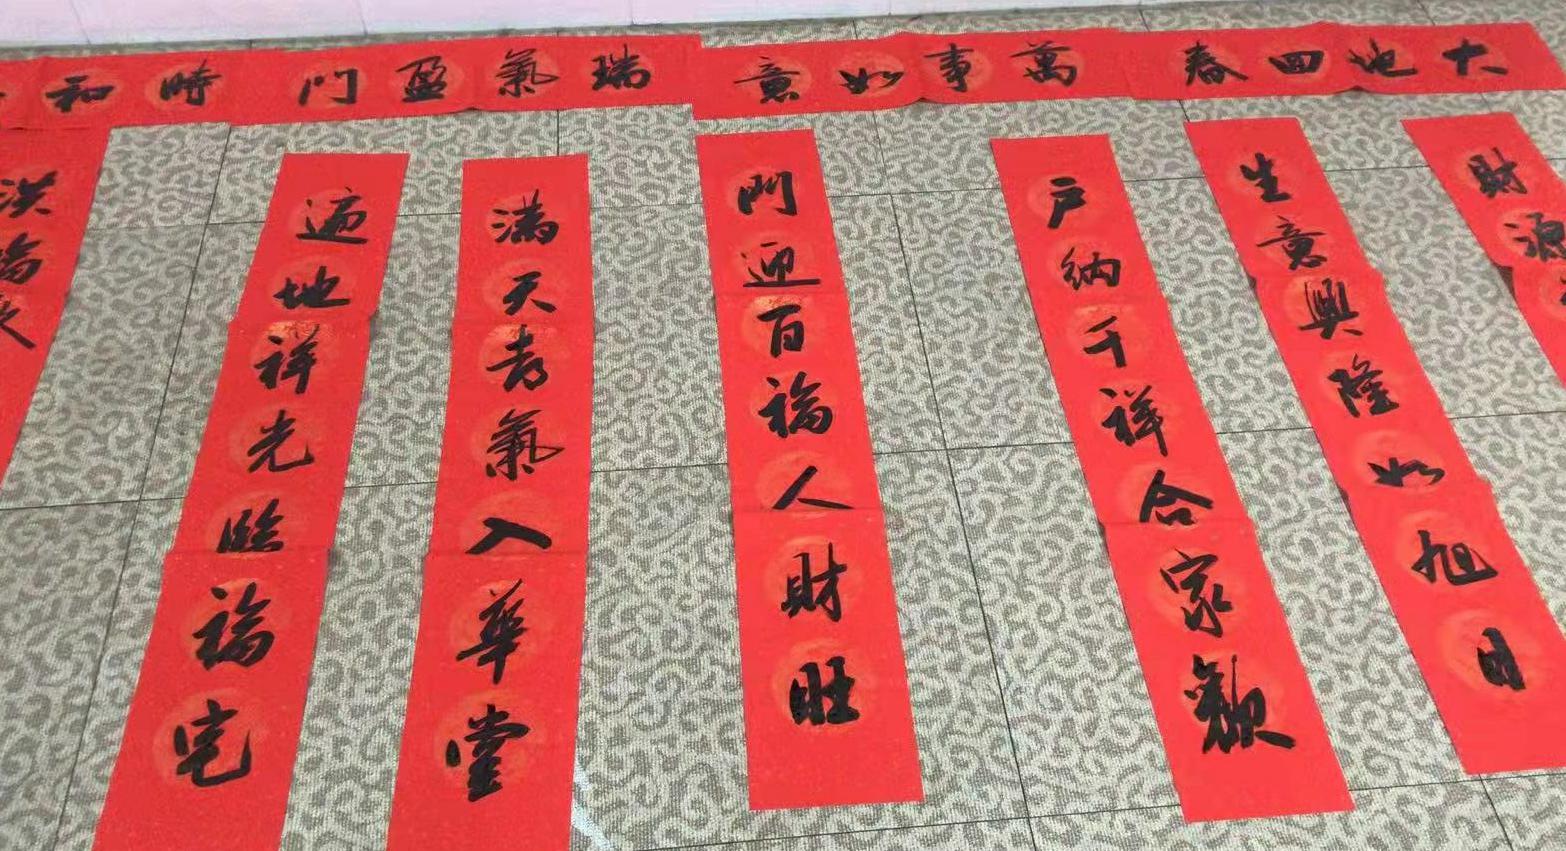 大地回春
萬事如意
瑞氣盈门
時和
財源
生意興隆如旭日
户纳千祥合家歡
門迎百福人財旺
满天喜氣入華堂
遍地祥光臨福宅
洪福